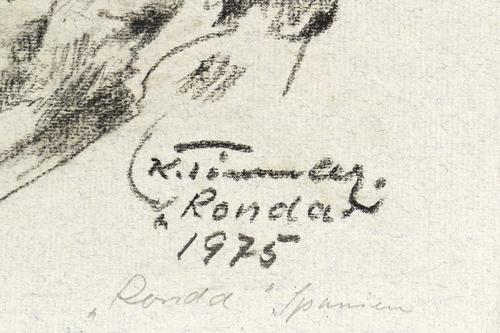 K.
„Ronda"
1975
„Ronda" Spanien